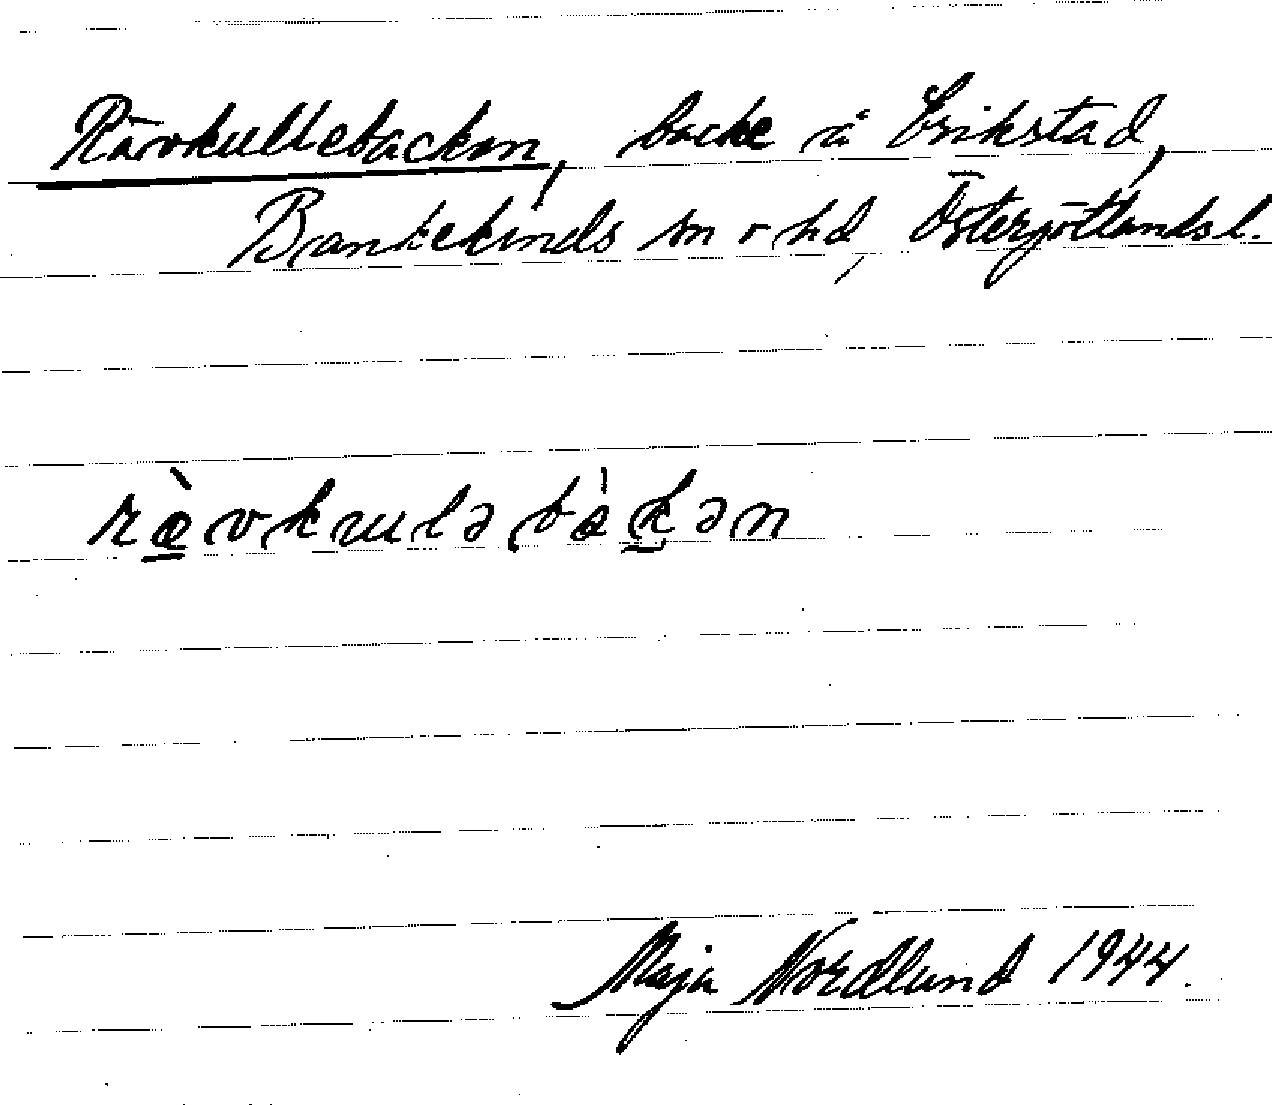 Rävkullebacken, backe å Erikstad,
Bankekinds sn o hd, Östergötlands l.
ræ̀vkuləbàkən
Maja Nordlund 1944.